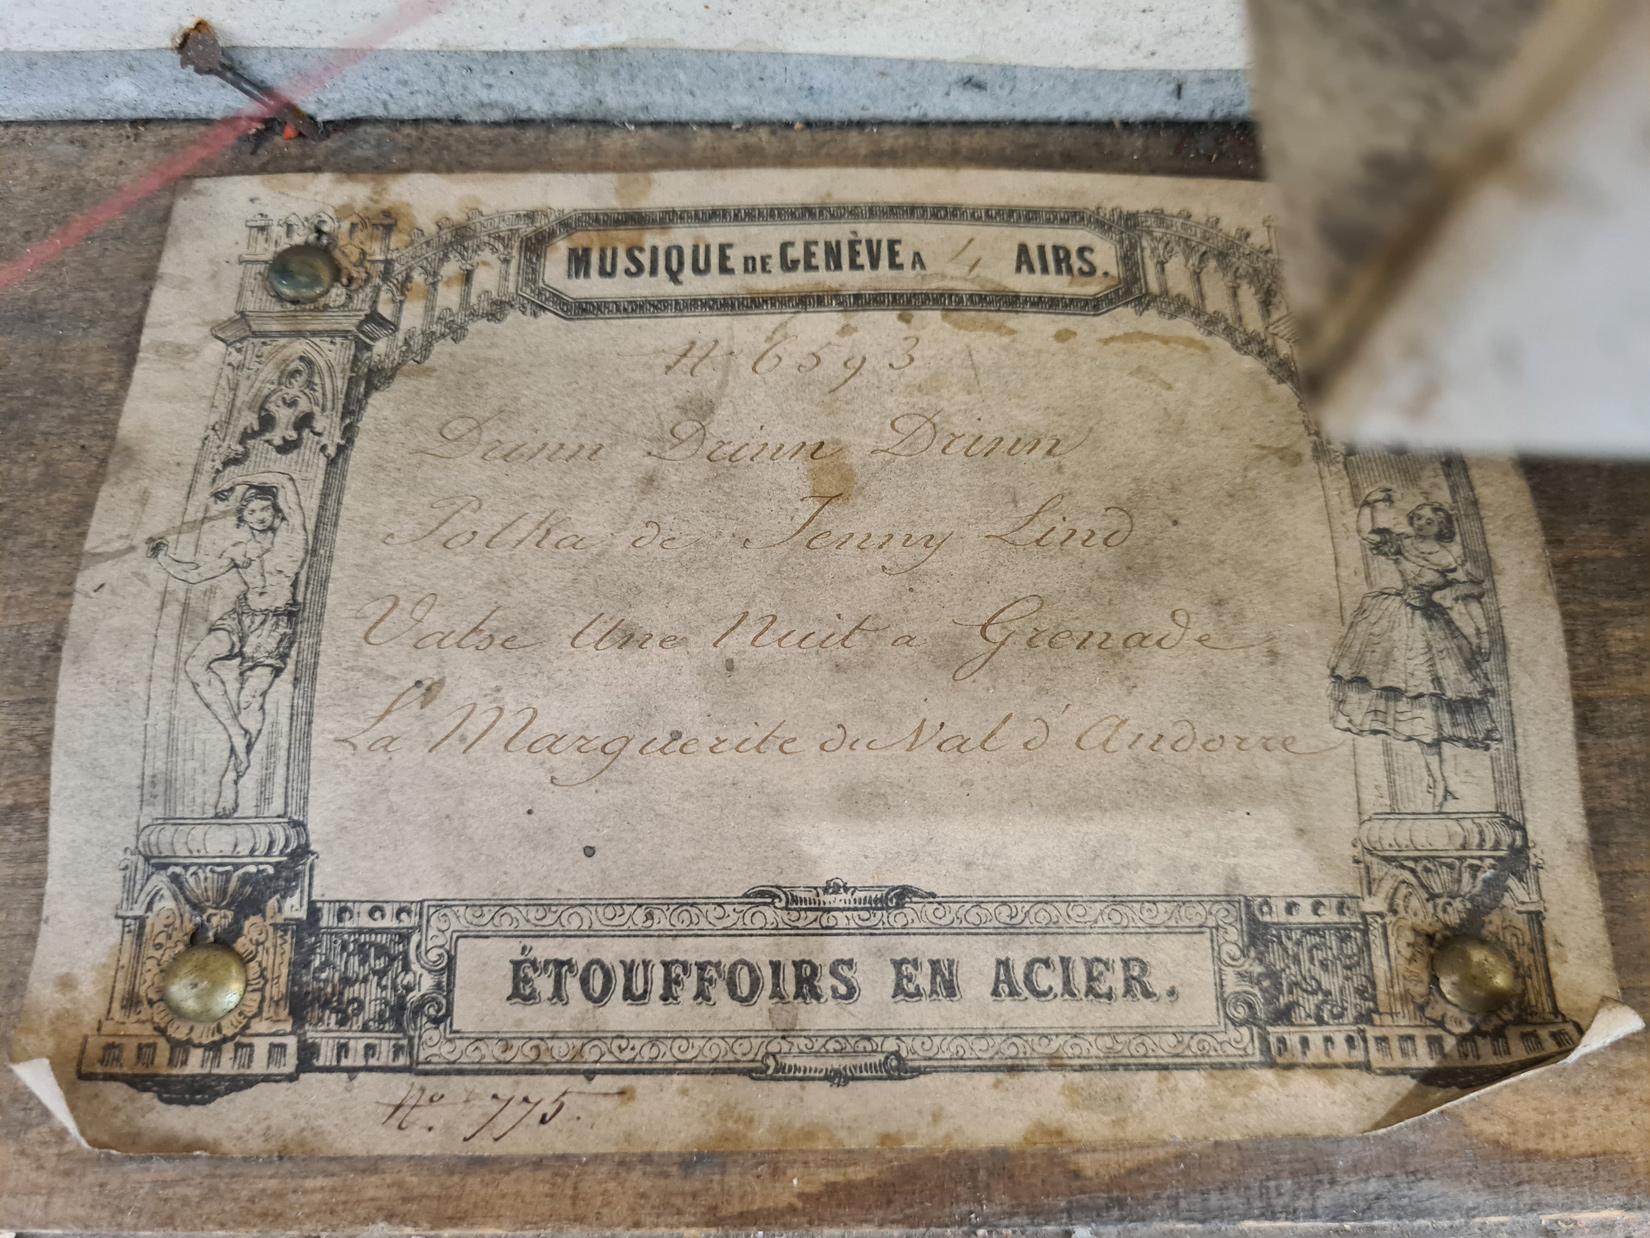 MUSIQUE DE GENÈVE A 4 AIRS.
N° 6593
Drinn Drinn Drinn
Polka de Jenny Lind
Valse Une Nuit a Grenade
La Marguerite du Val d'Andorre
ÉTOUFFOIRS EN ACIER.
N° 775.